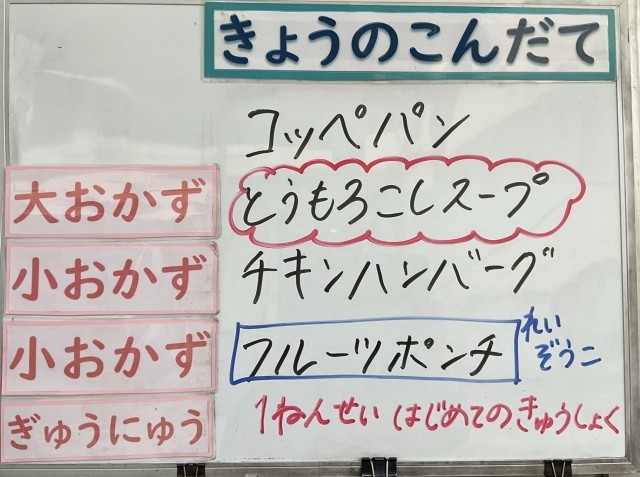 きょうのこんだて
コッペパン
大おかず とうもろこしスープ
小おかず チキンハンバーグ
小おかず フルーツポンチ れい
ぞうこ
ぎゅうにゅう 1ねんせい はじめてのきゅうしょく